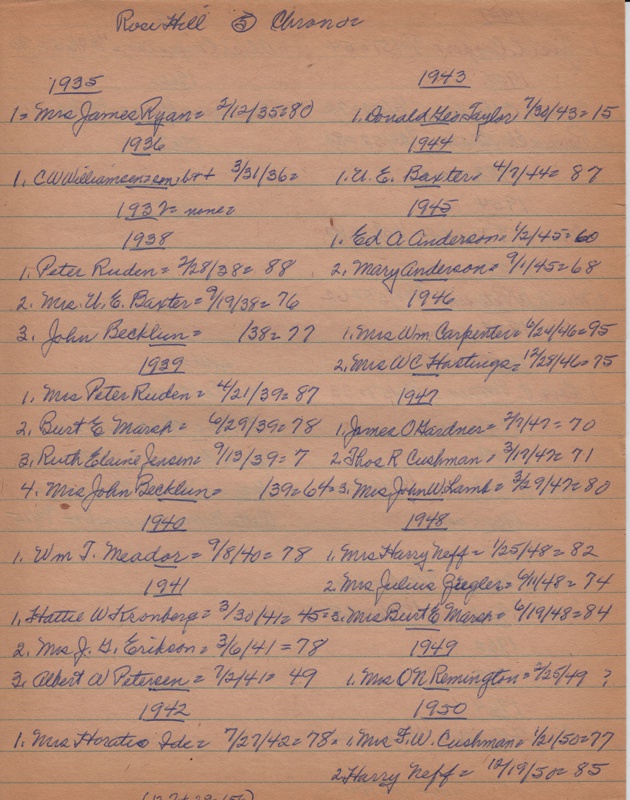 Rose Hill ⑤ Chronoc
1935
1= Mrs James Ryan= 2/12/35=80
1936
1. CW Williamson=son, b++ 3/31/36=
1937= none=
1938
1. Peter Ruden= 2/28/38= 88
2. Mrs. U. E. Baxter= 9/19/38= 76
3. John Becklun= /38= 77
1939
1. Mrs Peter Ruden= 4/21/39= 87
2. Burt E Marsh= 6/29/39= 78
3. Ruth Elaine Jensen= 9/13/39= 7
4. Mrs John Becklun= /39= 64=
1940
1. Wm T. Meador= 9/8/40= 78
1941
1. Hattie W Kronberg= 3/30/41= 45=
2. Mrs J. G. Erikson= 3/6/41= 78
3. Albert W Petersen= 7/2/41= 49
1942
1. Mrs Horatio Ide= 7/27/42= 78=
1943
1. Donald Geo Taylor 7/30/43= 15
1944
1. U. E. Baxter= 4/7/44= 87
1945
1. Ed A Anderson= 1/2/45= 60
2. Mary Anderson= 9/1/45= 68
1946
1. Mrs Wm Carpenter= 6/24/46= 95
2. Mrs W C Hastings= 12/28/46= 75
1947
1. James O Gardner= 2/7/47= 70
2. Thos R Cushman= 3/17/47= 71
3. Mrs John W Lamb= 3/29/47= 80
1948
1. Mrs Harry Neff= 1/25/48= 82
2. Mrs Julius Ziegler= 6/11/48= 74
3. Mrs Burt E Marsh= 6/19/48= 84
1949
1. Mrs O N Remington= 2/25/49 ?
1950
1. Mrs F. W. Cushman= 1/21/50= 77
2. Harry Neff= 12/19/50= 85